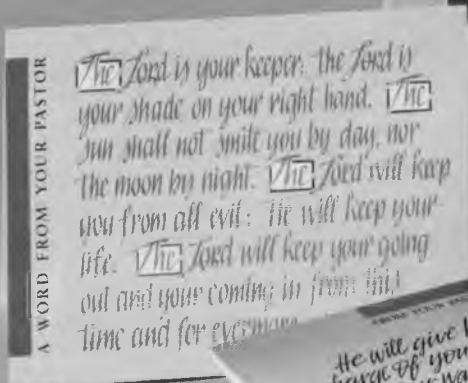 A WORD FROM YOUR PASTOR
The Lord is your keeper: the Lord is
your shade on your right hand. The
sun shall not smite you by day, nor
the moon by night. The Lord will keep
you from all evil: He will keep your
life. The Lord will keep your going
out and your coming in from this
time and for evermore
He will give
charge of you